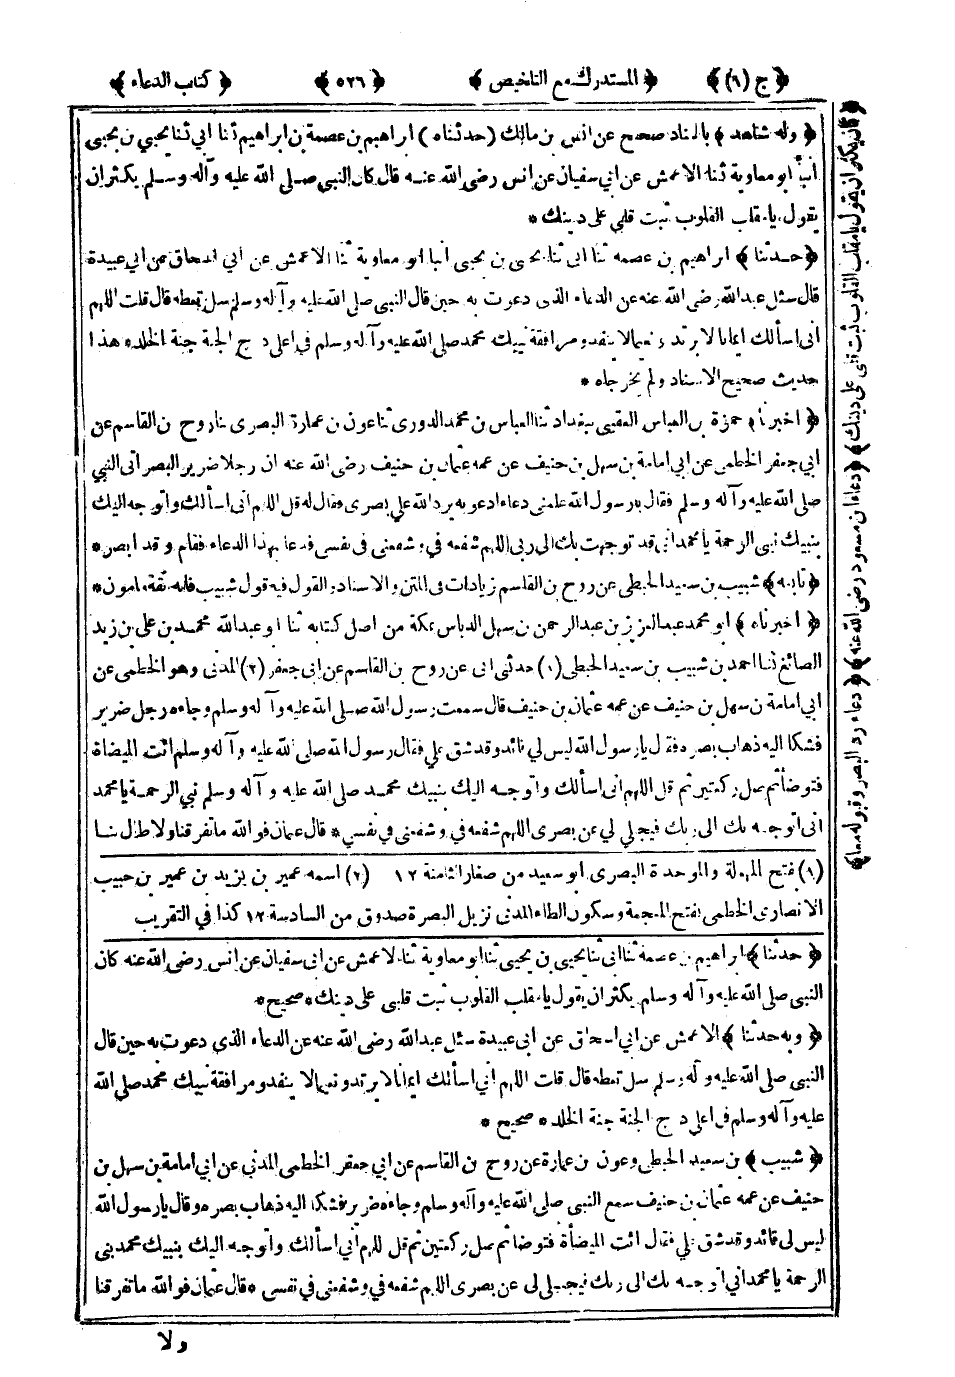 ﴿ ج (١) ﴾ ﴿ المستدرك مع التلخيص ﴾ ﴿ ٥٢٦ ﴾ ﴿ كتاب الدعاء ﴾
﴿ وله شاهد ﴾ باسناد صحيح عن انس بن مالك (حدثناه) ابراهيم بن عصمة بن ابراهيم ثنا ابي ثنا يحيى بن يحيى
انبأ ابو معاوية ثنا الاعمش عن ابي سفيان عن انس رضى الله عنه قال كان النبي صلى الله عليه وآله وسلم يكثر ان
يقول يا مقلب القلوب ثبت قلبي على دينك *
﴿ حدثنا ﴾ ابراهيم بن عصمه ثنا ابى ثنا يحيى بن يحيى انبا ابو معاوية ثنا الاعمش عن ابي اسحاق عن ابي عبيدة
قال سئل عبدالله رضى الله عنه عن الدعاء الذى دعوت به حين قال النبى صلى الله عليه وآله وسلم سل تعطه قال قلت اللهم
انى اسألك ايمانا لا يرتد ونعيما لا ينفد ومرافقة نبيك محمد صلى الله عليه وآله وسلم في اعلى درج الجنة جنة الخلد* هذا
حديث صحيح الاسناد ولم يخرجاه *
﴿ اخبرنا ﴾ حمزة بن العباس العقبى ببغداد ثنا العباس بن محمد الدورى ثنا عون بن عمارة البصرى ثنا روح بن القاسم عن
ابي جعفر الخطمى عن ابي امامة بن سهل بن حنيف عن عمه عثمان بن حنيف رضى الله عنه ان رجلا ضرير البصر اتى النبي
صلى الله عليه وآله وسلم فقال يا رسول الله علمنى دعاء ادعو به يرد الله علي بصرى فقال له قل اللهم انى اسألك واتوجه اليك
بنبيك نبى الرحمة يا محمد انى قد توجهت بك الى ربى اللهم شفعه في وشفعنى فى نفسى فدعا بهذا الدعاء فقام وقد ابصر*
﴿ تابعه ﴾ شبيب بن سعيد الحبطى عن روح بن القاسم زيادات فى المتن والاسناد والقول فيه قول شبيب فانه ثقة مامون*
﴿ اخبرناه ﴾ ابو محمد عبدالعزيز بن عبدالرحمن بن سهل الدباس بمكة من اصل كتابه ثنا ابو عبدالله محمد بن على بن زيد
الصائغ ثنا احمد بن شبيب بن سعيد الحبطى (١) حدثنى ابى عن روح بن القاسم عن ابى جعفر (٢) المدنى وهو الخطمى عن
ابي امامة بن سهل بن حنيف عن عمه عثمان بن حنيف قال سمعت رسول الله صلى الله عليه وآله وسلم وجاءه رجل ضرير
فشكا اليه ذهاب بصره فقال يا رسول الله ليس لي قائد وقد شق علي فقال رسول الله صلى الله عليه وآله وسلم ائت الميضاة
فتوضأ ثم صل ركعتين ثم قل اللهم انى اسألك واتوجه اليك بنبيك محمد صلى الله عليه وآله وسلم نبي الرحمة يا محمد
انى اتوجه بك الى ربك فيجلي لي عن بصرى اللهم شفعه في وشفعنى في نفسي* قال عثمان فو الله ما تفرقنا ولا طال بنا
(١) بفتح المهملة والموحدة البصرى ابو سعيد من صغار الثامنة ١٢ (٢) اسمه عمير بن يزيد بن عمير بن حبيب
الانصارى الخطمى بفتح المعجمة وسكون الطاء المدنى نزيل البصرة صدوق من السادسة ١٢ كذا في التقريب
﴿ حدثنا ﴾ ابراهيم بن عصمة ثنا ابى ثنا يحيى بن يحيى ثنا ابو معاوية ثنا الاعمش عن ابى سفيان عن انس رضى الله عنه كان
النبى صلى الله عليه وآله وسلم يكثر ان يقول يا مقلب القلوب ثبت قلبى على دينك * صحيح*
﴿ وبه حدثنا ﴾ الاعمش عن ابي اسحاق عن ابى عبيدة سئل عبدالله رضى الله عنه عن الدعاء الذى دعوت به حين قال
النبى صلى الله عليه وآله وسلم سل تعطه قال قلت اللهم انى اسألك ايمانا لا يرتد ونعيما لا ينفد ومرافقة نبيك محمد صلى الله
عليه وآله وسلم فى اعلى درج الجنة جنة الخلد* صحيح *
﴿ شبيب ﴾ بن سعيد الحبطى وعون بن عمارة عن روح بن القاسم عن ابي جعفر الخطمى المدنى عن ابي امامة بن سهل بن
حنيف عن عمه عثمان بن حنيف سمع النبى صلى الله عليه وآله وسلم وجاءه ضرير فشكا اليه ذهاب بصره وقال يا رسول الله
ليس لى قائد وقد شق علي فقال ائت الميضأة فتوضأ ثم صل ركعتين ثم قل اللهم انى اسألك واتوجه اليك بنبيك محمد نبى
الرحمة يا محمد اني اتوجه بك الى ربك فيجلي لى عن بصرى اللهم شفعه في وشفعنى في نفسى *قال عثمان فو الله ما تفرقنا
ولا
﴿ كان يكثر ان يقول يا مقلب القلوب ثبت قلبى على دينك ﴾ ﴿ دعاء ابن مسعود رضى الله عنه ﴾ ﴿ دعاء رد البصر وقبوله معا ﴾